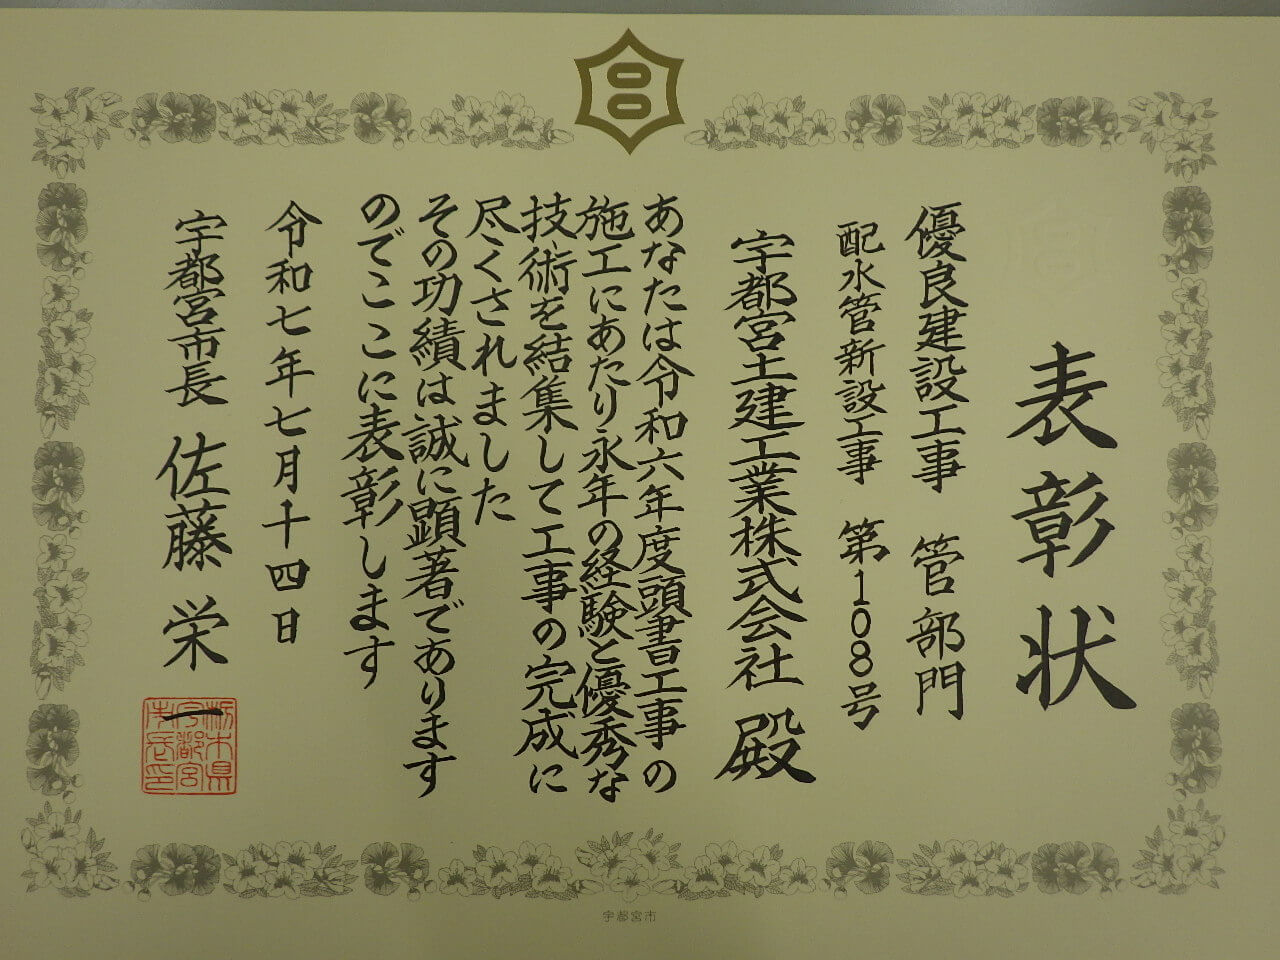 表彰状
優良建設工事 管部門
配水管新設工事 第108号
宇都宮土建工業株式会社 殿
あなたは令和六年度頭書工事の
施工にあたり永年の経験と優秀な
技術を結集して工事の完成に
尽くされました
その功績は誠に顕著であります
のでここに表彰します
令和七年七月十四日
宇都宮市長 佐藤栄一
栃木県
宇都宮
市長印
宇都宮市